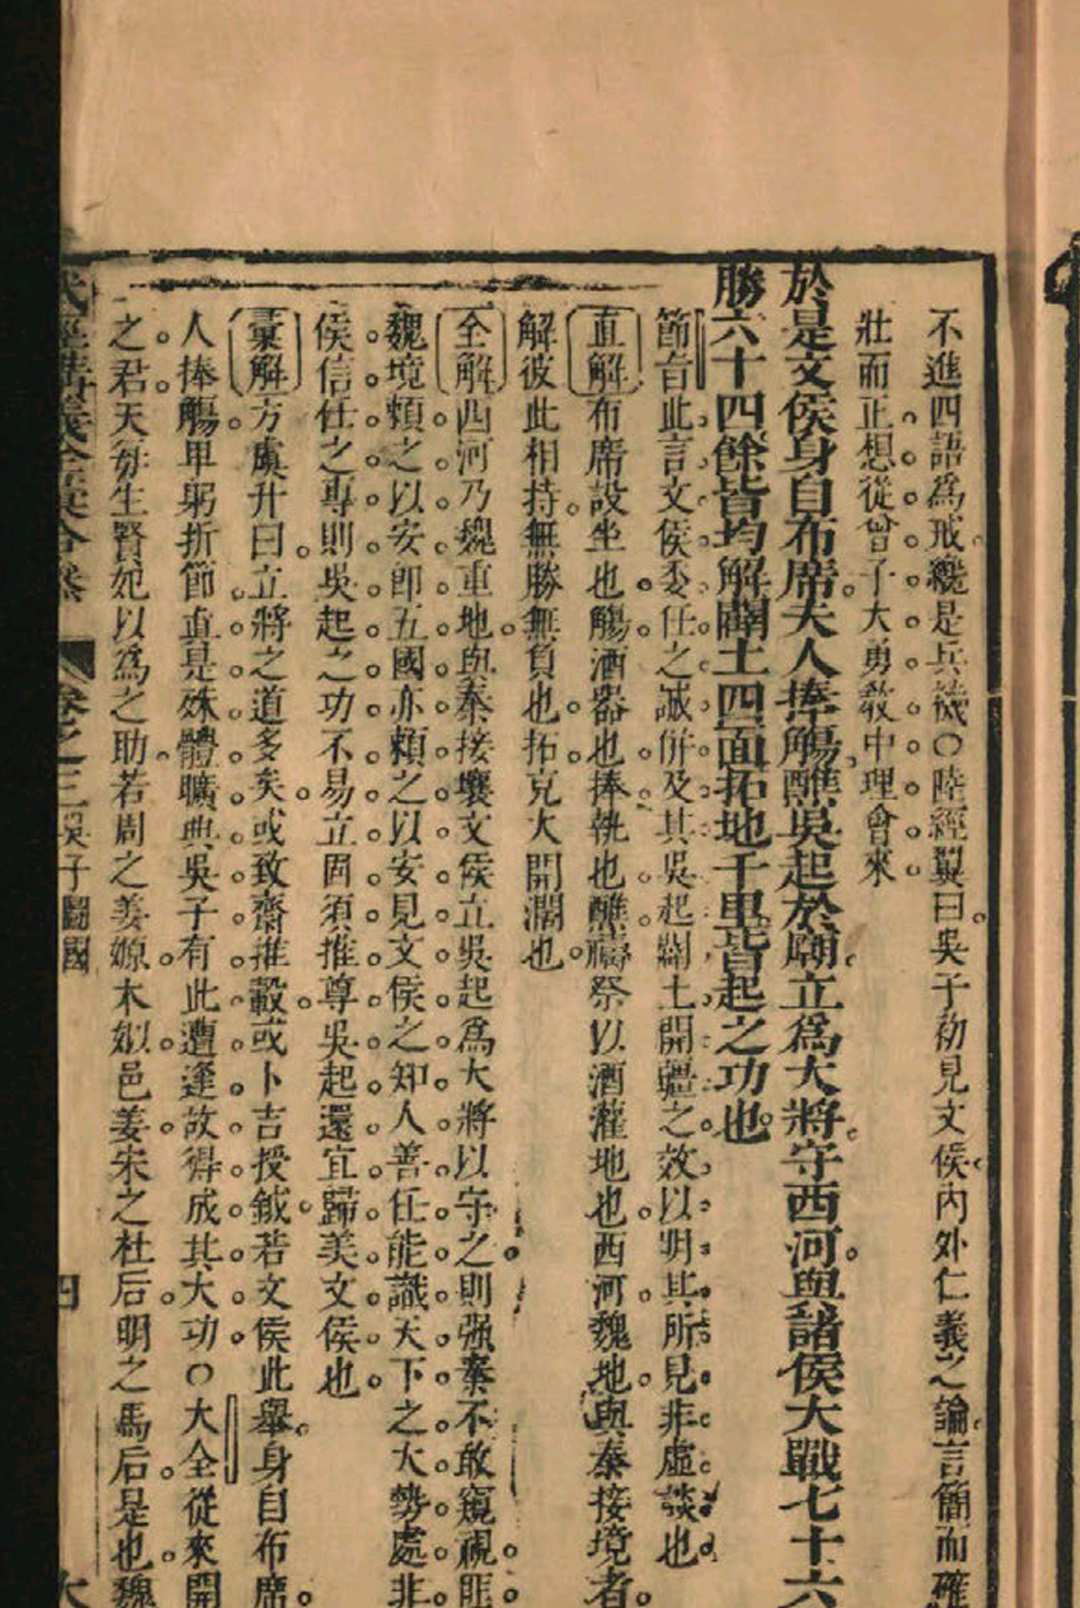 不進四語爲戒纔是兵機○陸經翼曰吳子初見文侯內外仁義之論言簡而確
壯而正想從曾子大勇敎中理會來
於是文侯身自布席夫人捧觴醮吳起於廟立爲大將守西河與諸侯大戰七十六
勝六十四餘皆均解闢土四面拓地千里皆起之功也
節旨此言文侯委任之誠併及其吳起闢土開疆之效以明其所見非虛談也
直解布席設坐也觴酒器也捧執也醮禱祭以酒灌地也西河魏地與秦接境者
解彼此相持無勝無負也拓克大開濶也
全解西河乃魏重地與秦接壤文侯立吳起爲大將以守之則强秦不敢窺視旺
魏境賴之以安卽五國亦賴之以安見文侯之知人善任能識天下之大勢處非
侯信任之專則吳起之功不易立固須推尊吳起還宜歸美文侯也
彙解方虞升曰立將之道多矣或致齋推轂或卜吉授鉞若文侯此舉身自布席
人捧觴卑躬折節直是殊體曠典吳子有此遭逢故得成其大功○大全從來開
之君天每生賢妃以爲之助若周之姜嫄木姒邑姜宋之杜后明之馬后是也魏
武經講義全彙合叅 卷之三吳子圖國 四